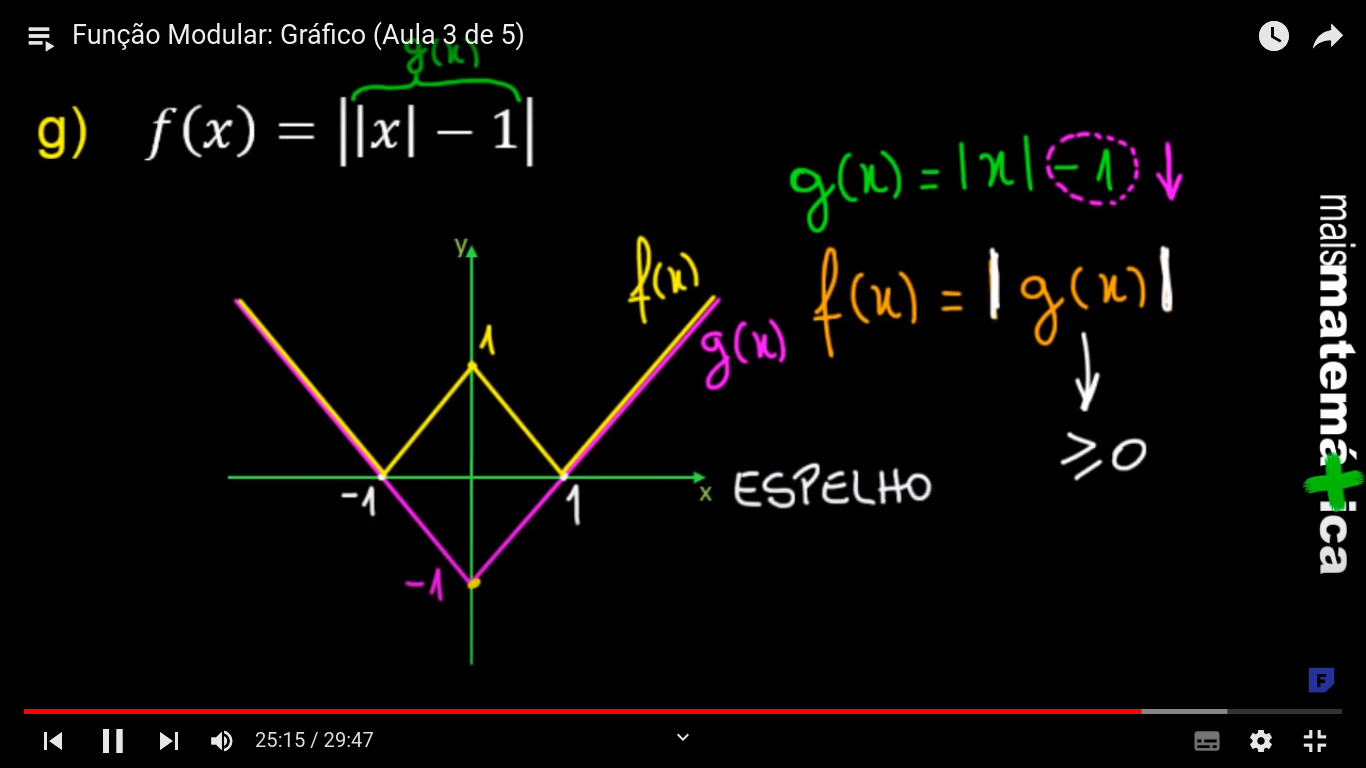 Função Modular: Gráfico (Aula 3 de 5)
g(x)
g) f(x) = ||x| − 1|
g(x) = |x| −1 ↓
f(x) = |g(x)|
≥0
y
f(x)
g(x)
1
-1
1
x
ESPELHO
-1
maismatemática
F
25:15 / 29:47